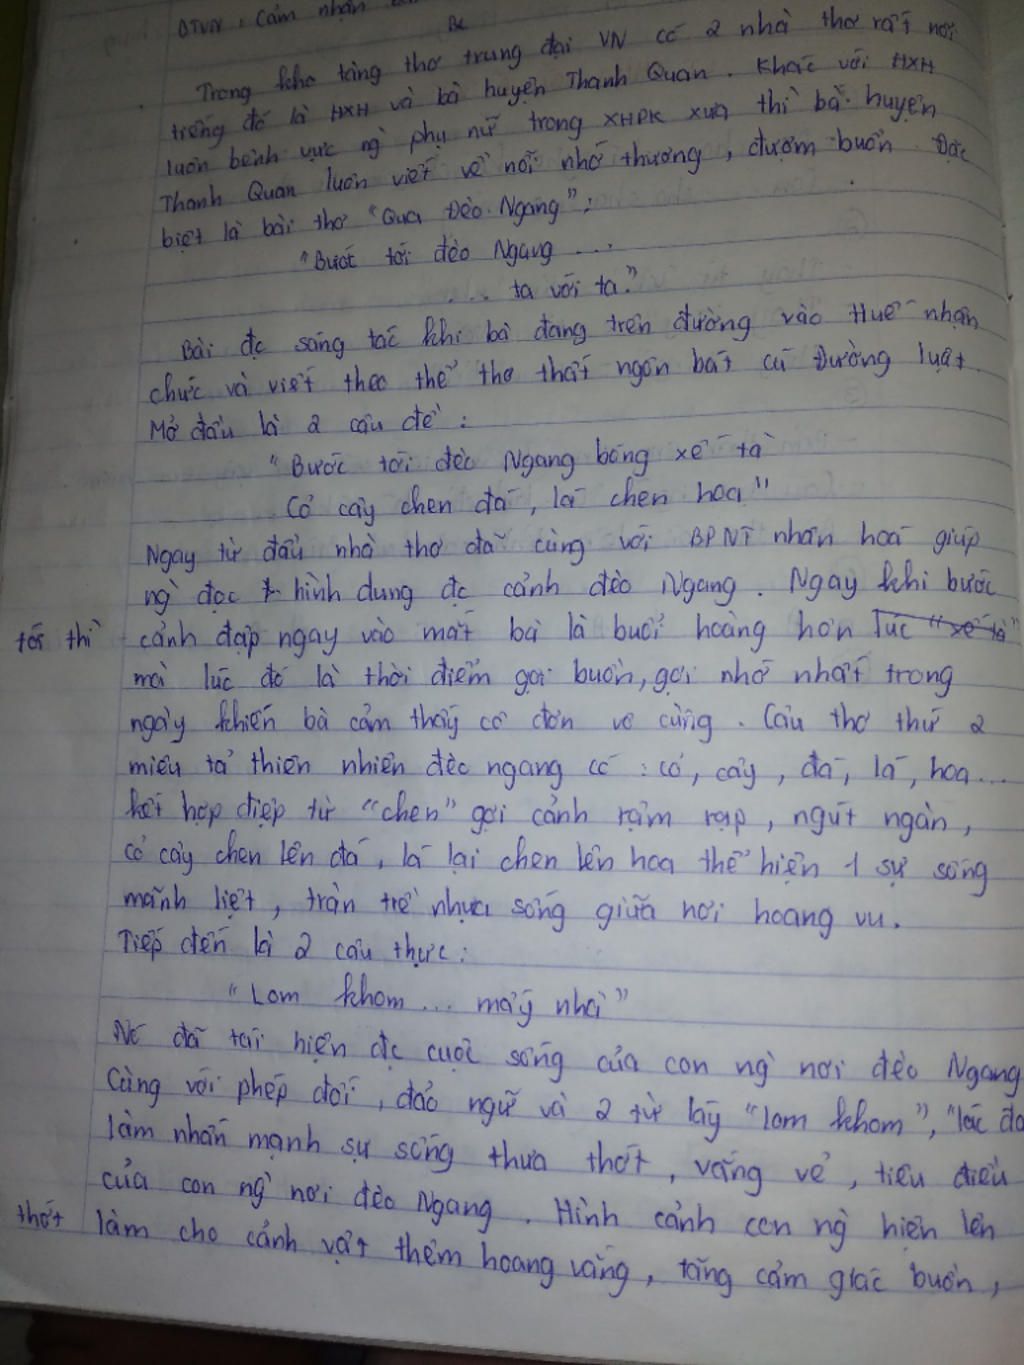 BTVN : Cảm nhận
Trong kho tàng thơ trung đại VN có 2 nhà thơ rất nổi
tiếng đó là HXH và bà huyện Thanh Quan. Khác với HXH
luôn bênh vực ng phụ nữ trong XHPK xưa thì bà huyện
Thanh Quan luôn viết về nỗi nhớ thương, đượm buồn. Đặc
biệt là bài thơ "Qua Đèo Ngang":
"Bước tới đèo Ngang ...
... ta với ta."
Bài đc sáng tác khi bà đang trên đường vào Huế nhận
chức và viết theo thể thơ thất ngôn bát cú Đường luật.
Mở đầu là 2 câu đề :
"Bước tới đèo Ngang bóng xế tà
Cỏ cây chen đá, lá chen hoa"
Ngay từ đầu nhà thơ đã cùng với BPNT nhân hoá giúp
ng` đọc hình dung đc cảnh đèo Ngang. Ngay khi bước
tới thì cảnh đập ngay vào mắt bà là buổi hoàng hôn lúc "xế tà"
mà lúc đó là thời điểm gợi buồn, gợi nhớ nhất trong
ngày khiến bà cảm thấy cô đơn vô cùng. Câu thơ thứ 2
miêu tả thiên nhiên đèo ngang có : cỏ, cây, đá, lá, hoa...
kết hợp điệp từ "chen" gợi cảnh rậm rạp, ngút ngàn,
cỏ cây chen lên đá, lá lại chen lên hoa thể hiện 1 sự sống
mãnh liệt, tràn trề nhựa sống giữa nơi hoang vu.
Tiếp đến là 2 câu thực:
"Lom khom ... mấy nhà"
Nó đã tái hiện đc cuộc sống của con ng` nơi đèo Ngang
Cùng với phép đối, đảo ngữ và 2 từ láy "lom khom", "lác đá
làm nhấn mạnh sự sống thưa thớt, vắng vẻ, tiêu điều
của con ng` nơi đèo Ngang. Hình cảnh con ng` hiện lên
thớt làm cho cảnh vật thêm hoang vắng, tăng cảm giác buồn,